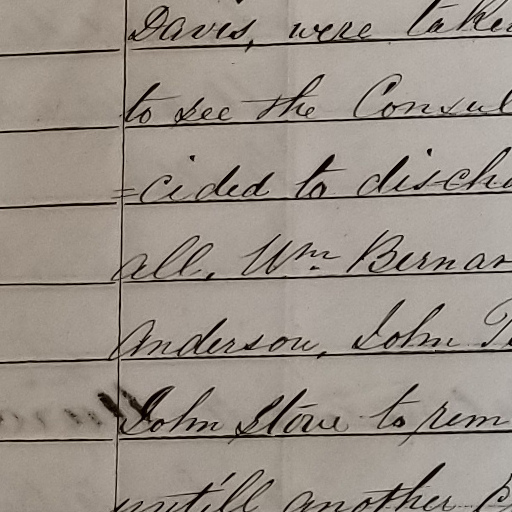 Davis, were taken
to see the Consul
=cided to discha
all. Wm. Bernar
Anderson, John T
John Stone to rem
untill another P